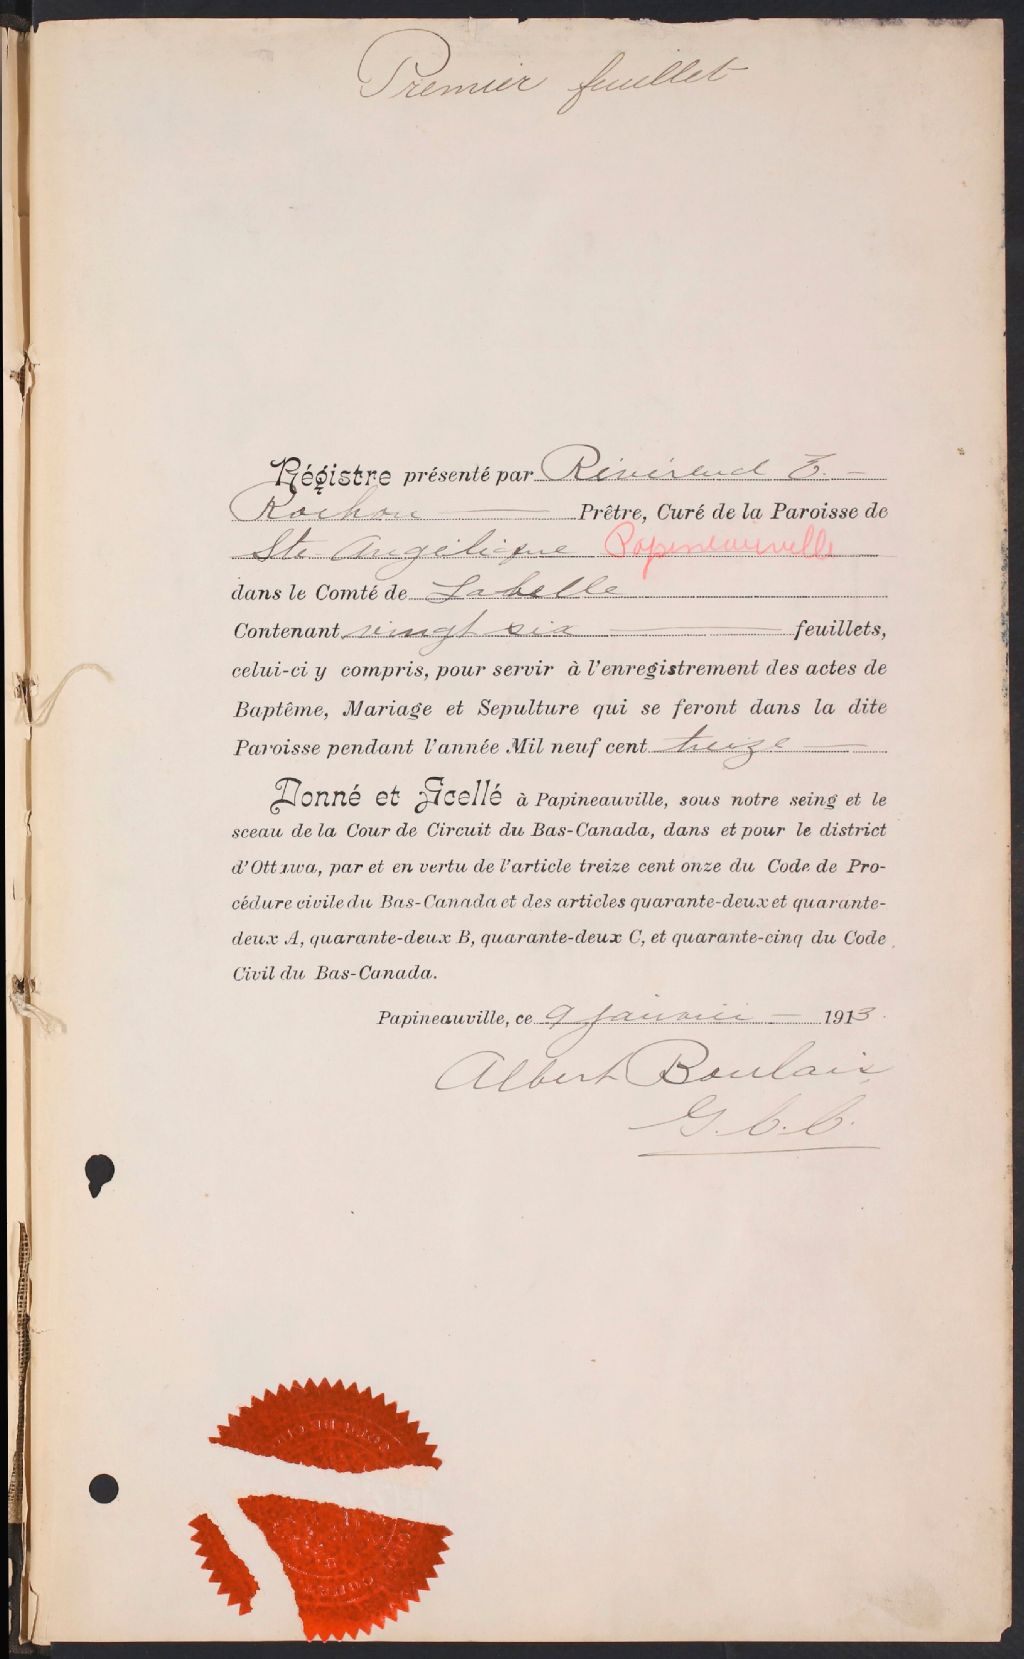 Premier feuillet
Régistre présenté par Révérend E. —
Rochon — Prêtre, Curé de la Paroisse de
Ste Angélique Papineauville
dans le Comté de Labelle
Contenant vingt six — feuillets,
celui-ci y compris, pour servir à l'enregistrement des actes de
Baptême, Mariage et Sepulture qui se feront dans la dite
Paroisse pendant l'année Mil neuf cent treize —
Donné et Scellé à Papineauville, sous notre seing et le
sceau de la Cour de Circuit du Bas-Canada, dans et pour le district
d'Ottawa, par et en vertu de l'article treize cent onze du Code de Pro-
cédure civile du Bas-Canada et des articles quarante-deux et quarante-
deux A, quarante-deux B, quarante-deux C, et quarante-cinq du Code
Civil du Bas-Canada.
Papineauville, ce 9 janvier — 1913.
Albert Boulais
G.C.C.